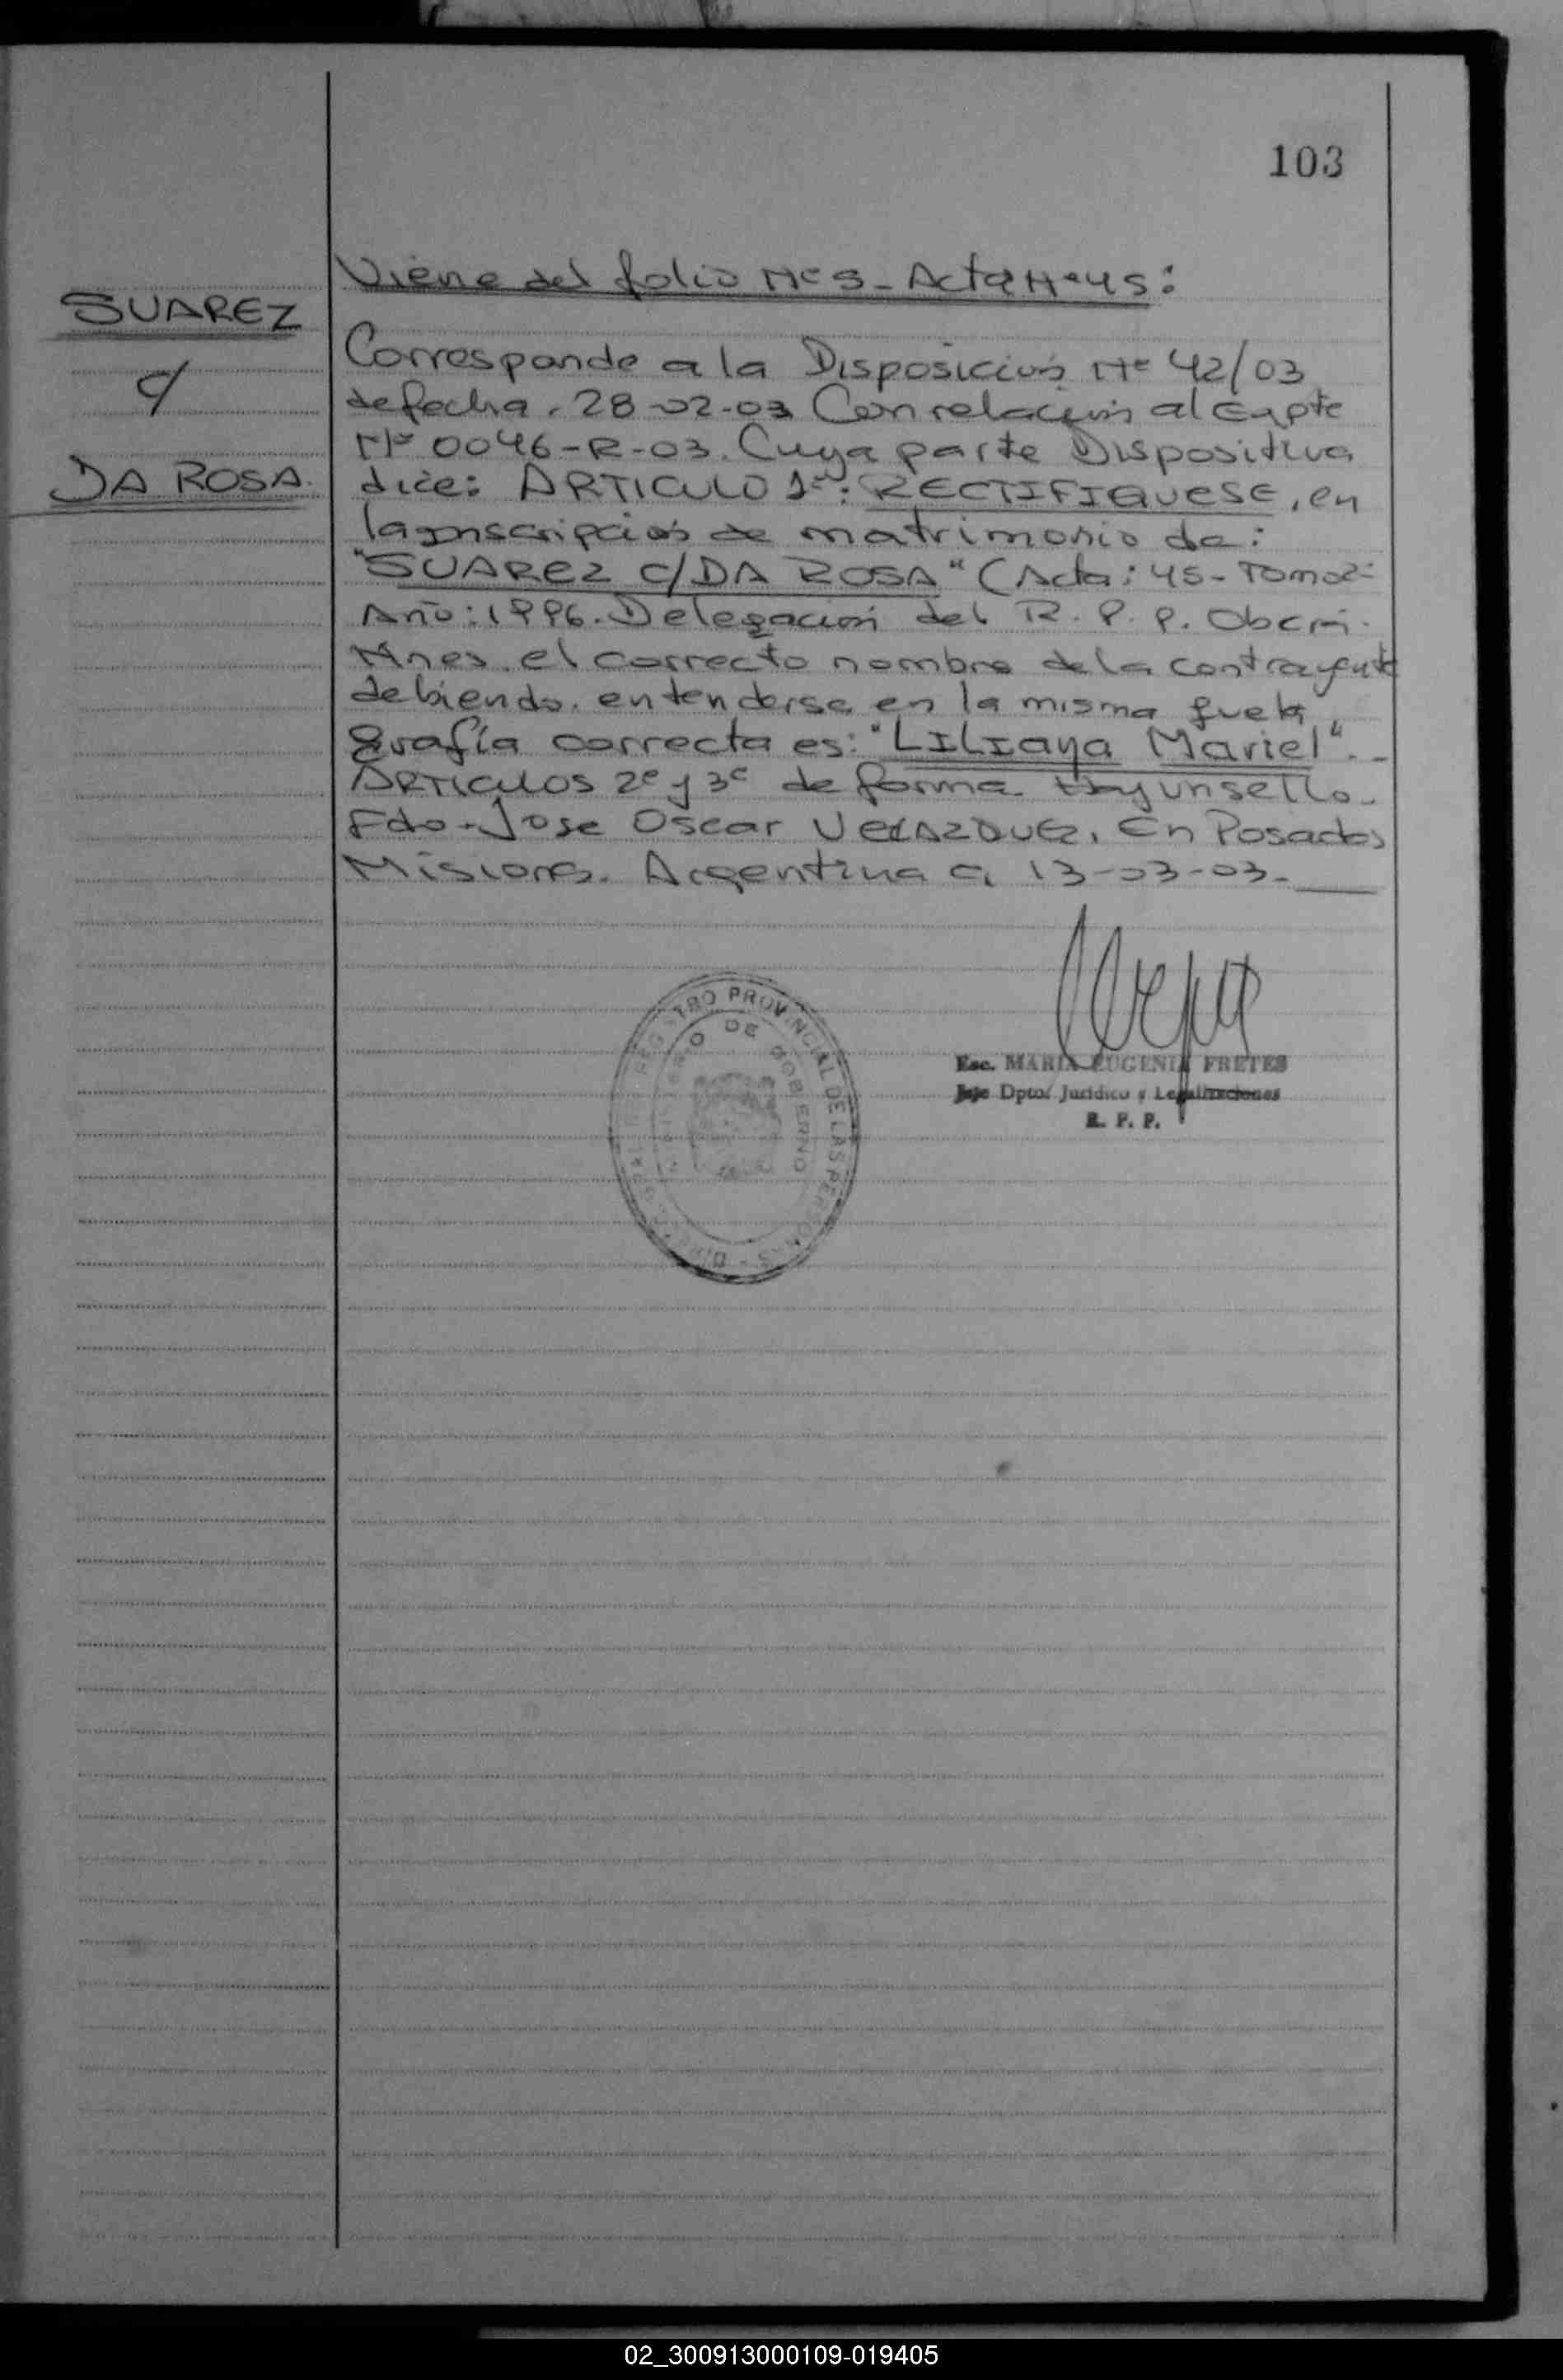 103
SUAREZ
c/
DA ROSA.
Viene del folio Nº 3 - Acta Nº 45:
Corresponde a la Disposición Nº 42/03
de fecha. 28-02-03 Con relación al Expte
Nº 0046-R-03. Cuya parte Dispositiva
dice: ARTICULO 1º: RECTIFIQUESE, en
la inscripción de matrimonio de:
"SUAREZ c/DA ROSA" (Acta: 45- Tomo 2º
Año: 1996. Delegación del R. P. P. Oberá.
Mnes. el correcto nombre de la contrayente
debiendo. entenderse en la misma que la
grafía correcta es: "LILIANA Mariel".-
ARTICULOS 2º y 3º de forma Hay un sello.
Fdo. Jose Oscar VELAZQUEZ. En Posadas
Misiones. Argentina a 13-03-03.-
REGISTRO PROVINCIAL DE LAS PERSONAS -
DE GOBIERNO
Esc. MARIA EUGENIA FRETES
Jefe Dpto. Jurídico y Legalizaciones
R. P. P.
02_300913000109-019405